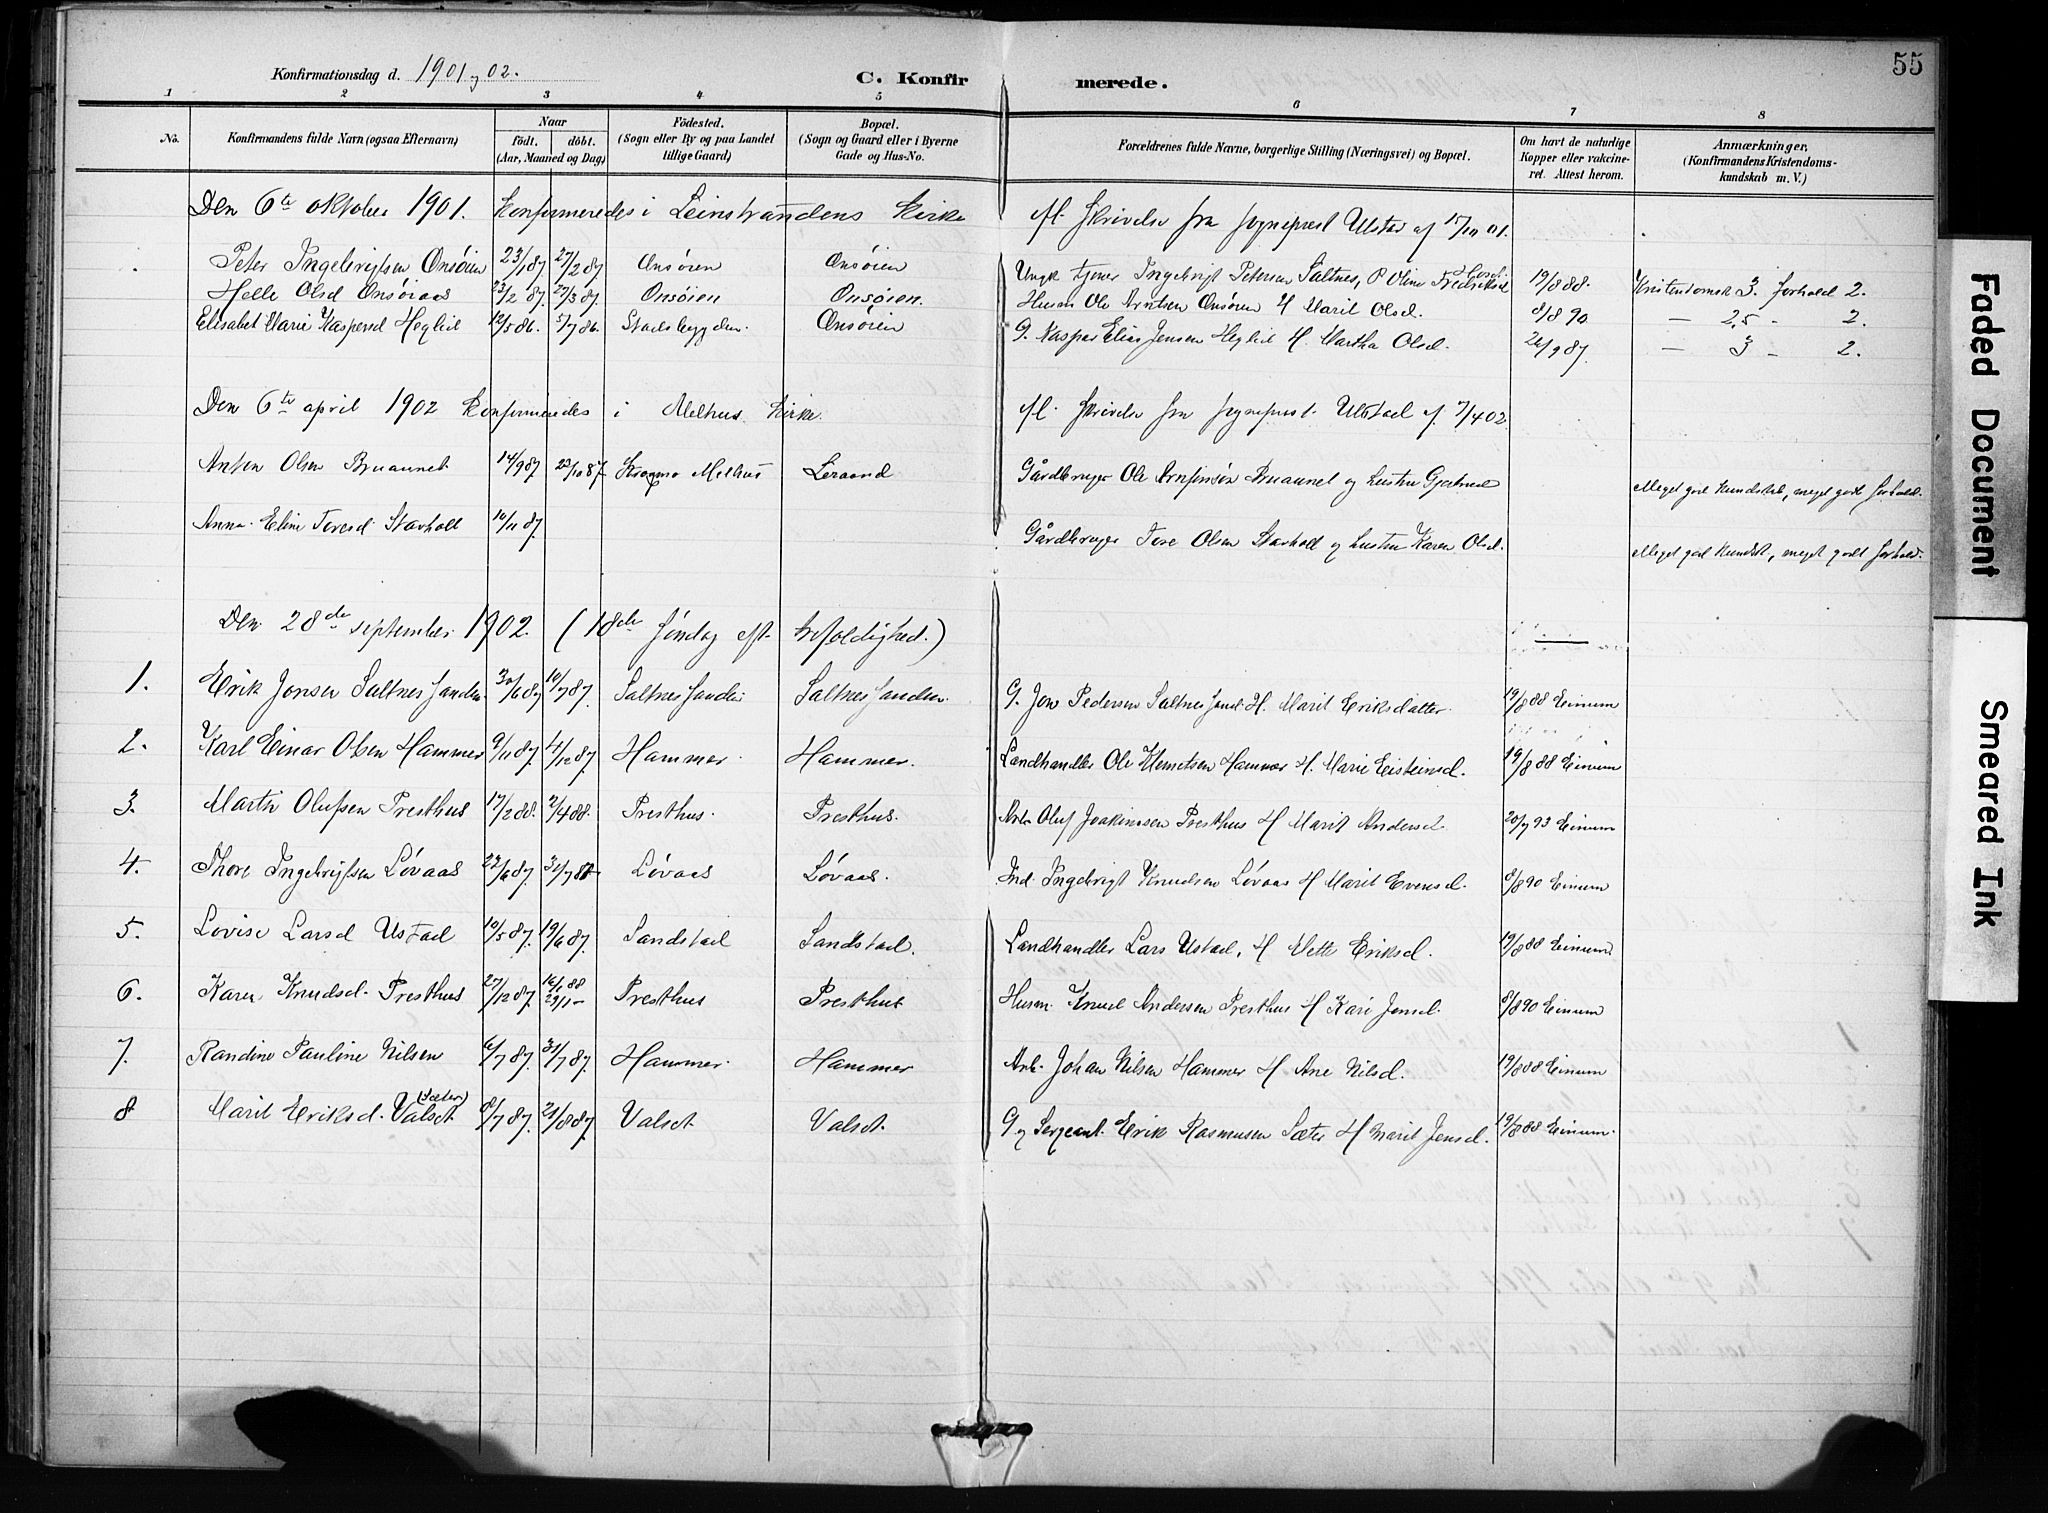 55
Konfirmationsdag d. 1901 og 02.
C. Konfirmerede.
1 2 3 4 5 6 7 8
No.
Konfirmandens fulde Navn (ogsaa Efternavn)
Naar
født. døbt.
(Aar, Maaned og Dag)
Fødested.
(Sogn eller By og paa Landet
tillige Gaard)
Bopæl.
(Sogn og Gaard eller i Byerne
Gade og Hus-No.
Forældrenes fulde Navne, borgerlige Stilling (Næringsvei) og Bopæl.
Om havt de naturlige
Kopper eller vakcine-
ret. Attest herom.
Anmærkninger,
(Konfirmandens Kristendoms-
kundskab m. V.)
Den 6te oktober 1901. Konfirmeredes i Leinstrandens Kirke fl. Skrivelse fra sogneprest Ulstad af 15/10 01.
Peter Ingebrigtsen Onsøien 23/1 87. 27/2 87. Onsøien Onsøien Ungk. tjener Ingebrigt Petersen Saltnes, P. Oline Fredriksd. 19/8 88. Kristendomsk 3. forhold 2.
Helle Olsd Onsøiaas 23/2 87. 27/3 87. Onsøien Onsøien. Husm Ole Arntsen Onsøien H Marit Olsd. 8/8 90 — 2,5 - 2.
Elisabet Marie Kaspersd Heglid 12/5 86. 5/7 86. Stadsbygden. Onsøien G. Kasper Elias Jensen Heglid H. Martha Olsd. 26/9 87. — 3 - 2.
Den 6te april 1902 Konfirmeredes i Melhus Kirke. fl. Skrivelse fra sogneprest Ulstad af 7/4 02.
Anton Olsen Bruaunet 14/9 87. 23/10 87. Melhus Leraand Gårdbruger Ole Arnfinsøn Bruaunet og hustru Gjertrud Meget god kundskab, meget godt forhold.
Anna Eline Toresd. Stavholt 10/11 87. Gårdbruger Tore Olsen Stavholt og hustru Karen Olsd. Meget god kundsk., meget godt forhold.
Den 28de september 1902. (18de søndag eft. trefoldighed.)
1. Erik Jonsen Saltnessanden. 30/6 87 10/7 87. Saltnessanden Saltnessanden. G. Jon Pedersen Saltnessand. H. Marit Eriksdatter. 19/8 88 Einum
2. Karl Einar Olsen Hammer 9/11 87. 4/12 87. Hammer. Hammer. Landhandler Ole Klemetsen Hammer H. Marie Eisteinsd. 19/8 88 Einum
3. Martin Olufsen Presthus 17/2 88. 2/4 88. Presthus. Presthus. Arb. Oluf Joakimsen Presthus H Marit Andersd 20/7 93 Einum
4. Thore Ingebrigtsen Løvaas 22/6 87. 31/7 87 Løvaas Løvaas. Ind. Ingebrigt Knudsen Løvaas H Marit Evensd. 8/8 90 Einum
5. Lovise Larsd Ustad 10/5 87. 19/6 87. Sandstad Sandstad. Landhandler Lars Ustad. H Mette Eriksd. 19/8 88 Einum
6. Karen Knudsd. Presthus 27/12 87. 16/1 88 29/1 - Presthus Presthus Husm. Knud Andersen Presthus H Kari Jensd. 8/8 90 Einum
7. Randine Pauline Nilsen 6/7 87. 31/7 87. Hammer. Hammer Arb. Johan Nilsen Hammer H Ane Nilsd. 19/8 88 Einum
8 Marit Eriksd. Valset (Sæter) 8/7 87. 21/8 87. Valset. Valset. G og Sergeant. Erik Rasmusen Sæter H Marit Jensd. 19/8 88 Einum.
Faded Document
Smeared Ink